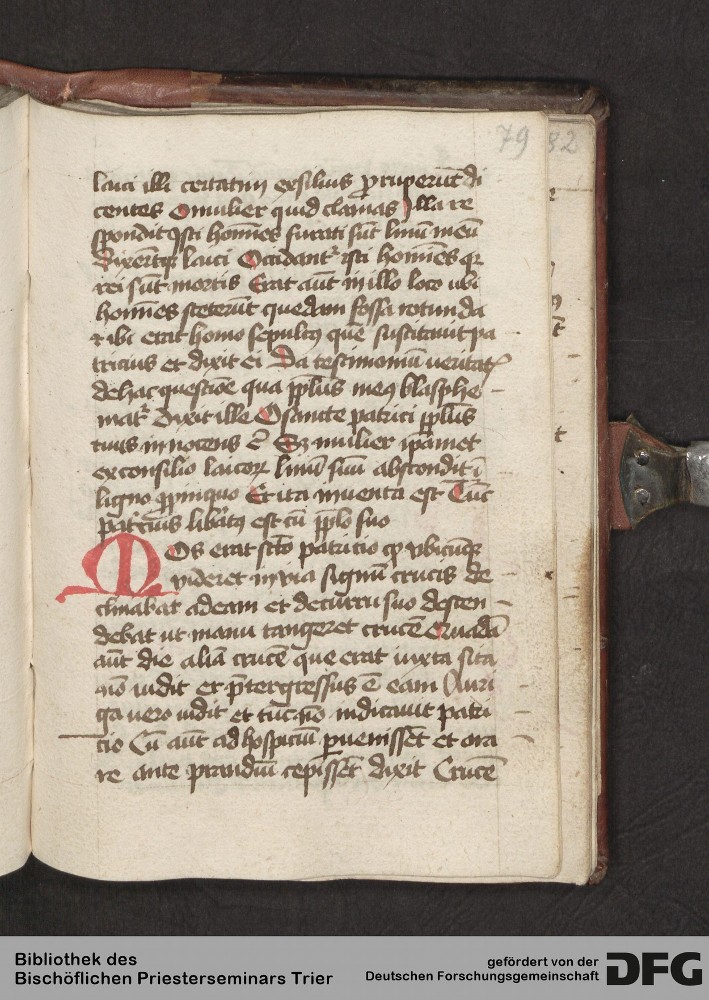 79 82
laici illi certatim exsilius ꝓruperūt di
centes O mulier quid clamas Illa re
spondit Isti homīes furati sūt linū meū
Dixerūtqꝫ laici Occidantʳ isti homīes qꝛ
rei sūt mortis Erat aūt in illo loco ubi
homīes steterūt quedam fossa rotunda
⁊ ibi erat homo sepultꝯ quē suscitauit pa
tricius et dixit ei Da testimoniū ueritatꝭ
de hac questiōe qua ppl̄us meꝯ blasphe
matʳ Dixit ille O sancte patrici ppl̄us
tuus innocens ē Sꝫ mulier ipāmet
ex consilio laicoꝝ linū suū abscondit ī
ligno ꝓpinquo Et ita inuenta est Tūc
patricius libātꝯ est cū pp̄lo suo
Mos erat scto patricio ꝙ vbicūqꝫ
videret in via signū crucis de
clinabat ad eam et de curru suo descen
debat ut manu tangeret crucē Quadā
aūt die aliā crucē que erat iuxta sita
nō uidit et p̄tergressus ē eam Auri
ga uero uidit et tūc nō indicauit patri
cio Cū aūt ad hospiciū ꝑuenissēt et ora
re ante prandiū cepissēt dixit Crucē
Bibliothek des
Bischöflichen Priesterseminars Trier
gefördert von der
Deutschen Forschungsgemeinschaft
DFG